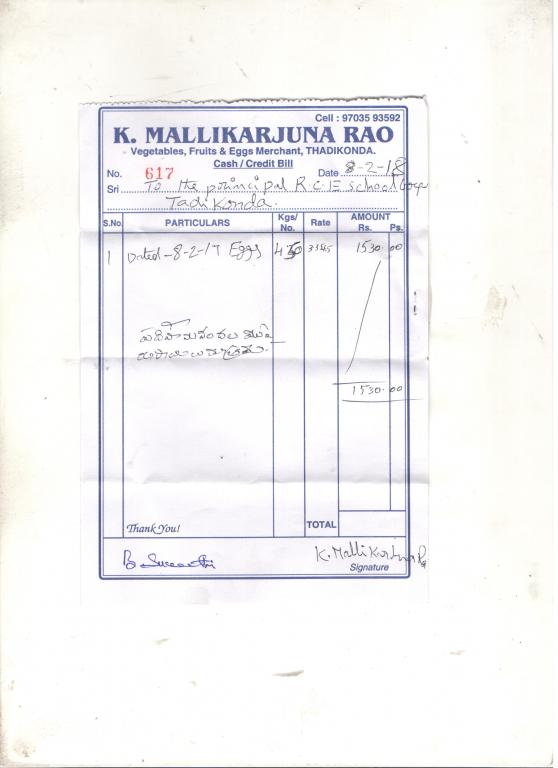 Cell : 97035 93592
K. MALLIKARJUNA RAO
Vegetables, Fruits & Eggs Merchant, THADIKONDA.
Cash / Credit Bill
No. 617 Date 8-2-18
Sri To the principal R.C.E School
Tadikonda.
S.No. PARTICULARS Kgs/ No. Rate AMOUNT Rs. Ps.
1 Dated-8-2-17 Eggs 1530.00
1530.00
Thank You! TOTAL
K. Mallikarjuna
Signature